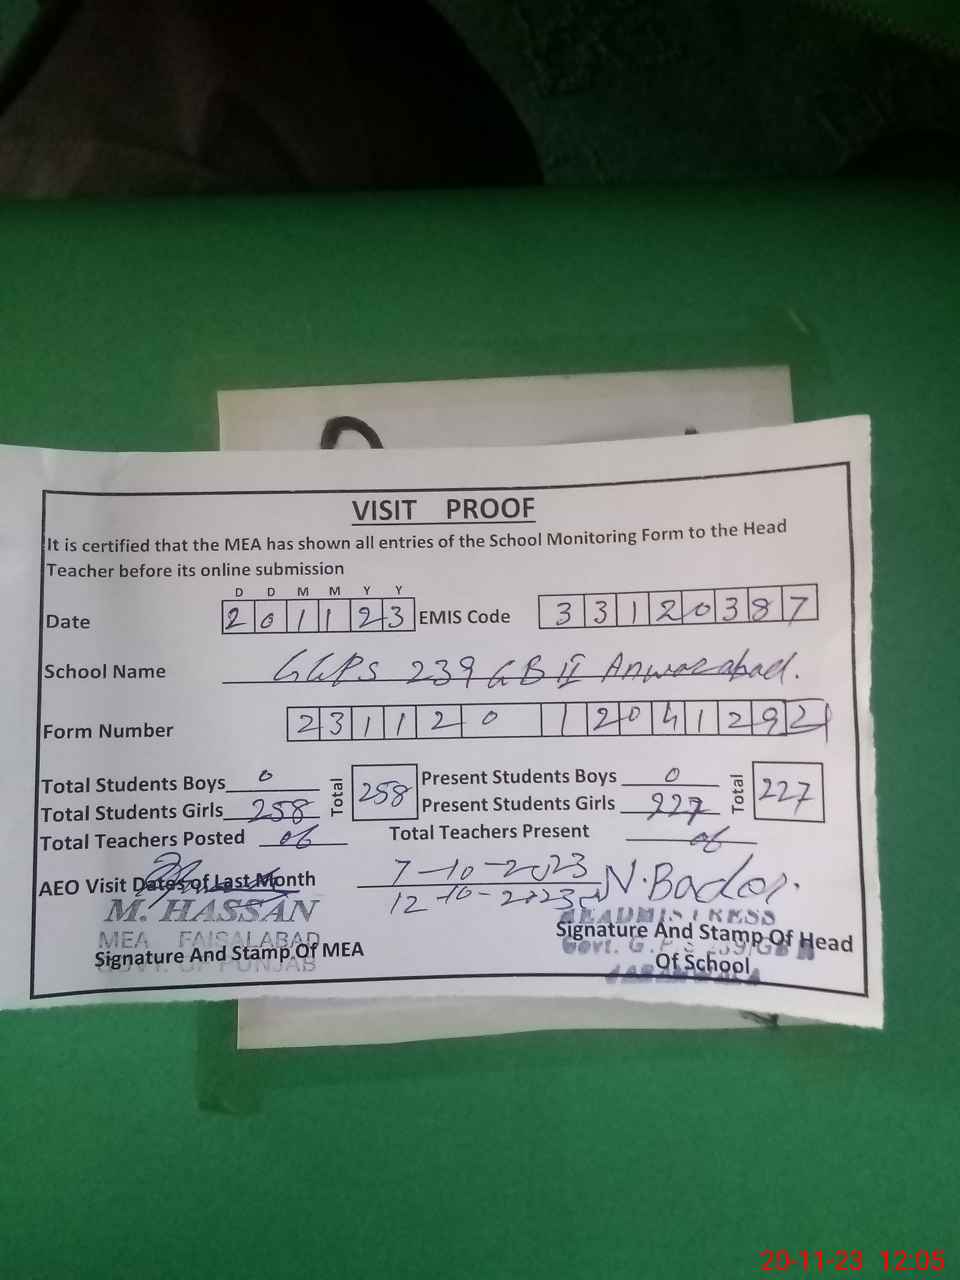 VISIT PROOF
It is certified that the MEA has shown all entries of the School Monitoring Form to the Head
Teacher before its online submission
D D M M Y Y
Date 2 0 1 1 2 3 EMIS Code 3 3 1 2 0 3 8 7
School Name GGPS 239 GB II Anwarabad.
Form Number 2 3 1 1 2 0 1 2 0 4 1 2 9 2
Total Students Boys 0 Total 258 Present Students Boys 0 Total 227
Total Students Girls 258 Present Students Girls 227
Total Teachers Posted 06 Total Teachers Present 06
AEO Visit Dates of Last Month 7-10-2023
12-10-2023
M. HASSAN
MEA FAISALABAD
GOVT. OF PUNJAB
Signature And Stamp Of MEA
HEADMISTRESS
Govt. G.P.S 239/GB
Signature And Stamp Of Head
Of School
20-11-23 12:05